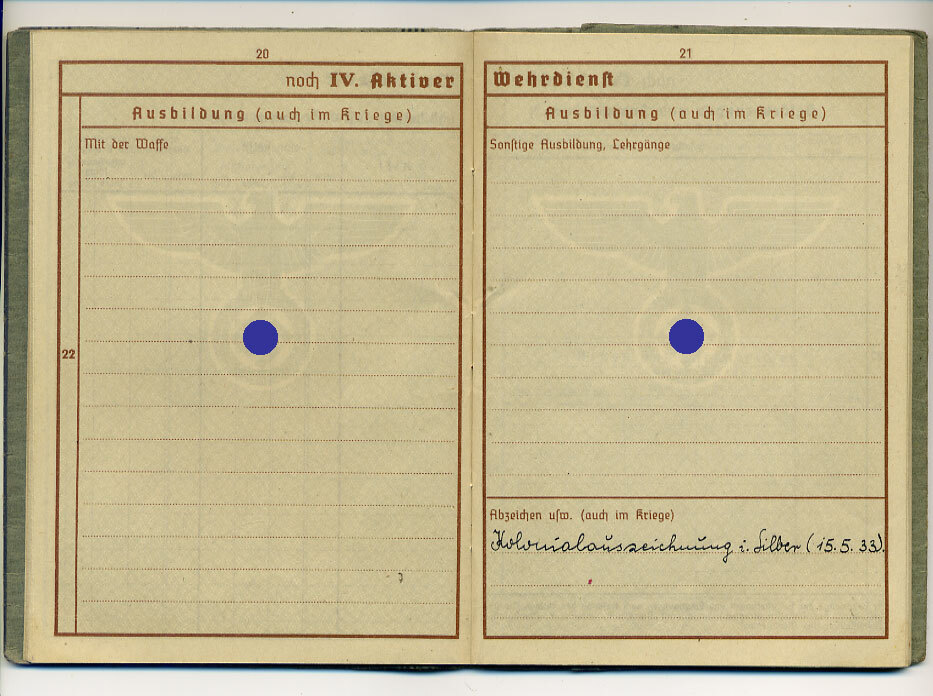 20
noch IV. Aktiver
Ausbildung (auch im Kriege)
Mit der Waffe
22
21
Wehrdienst
Ausbildung (auch im Kriege)
Sonstige Ausbildung, Lehrgänge
Abzeichen usw. (auch im Kriege)
Kolonialauszeichnung i. Silber (15.5.33).